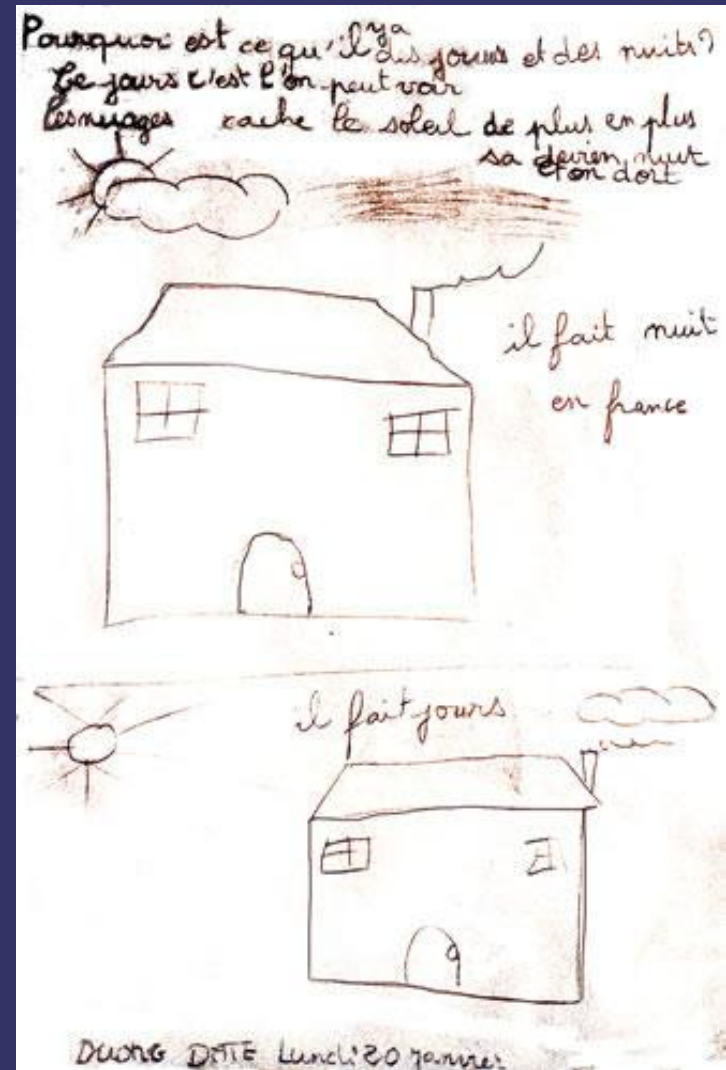 Pourquoi est ce qu'il ya des jours et des nuits?
Le jours c'est l'on peut voir
Les nuages cache le soleil de plus en plus
sa devien nuit
et on dort
il fait nuit
en france
il fait jours
DUONG Lundi 20 janvier